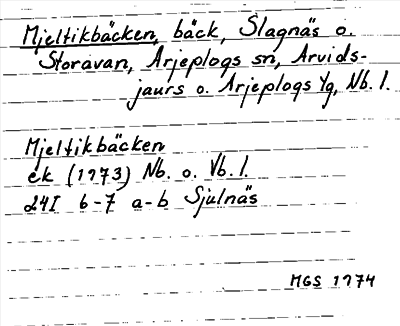 Mjeltikbäcken, bäck, Slagnäs o.
Storavan, Arjeplogs sn, Arvids-
jaurs o. Arjeplogs tg, Nb. l.
Mjeltikbäcken
ek (1973) Nb. o. Vb. l.
24I 6-7 a-b Sjulnäs
MGS 1974